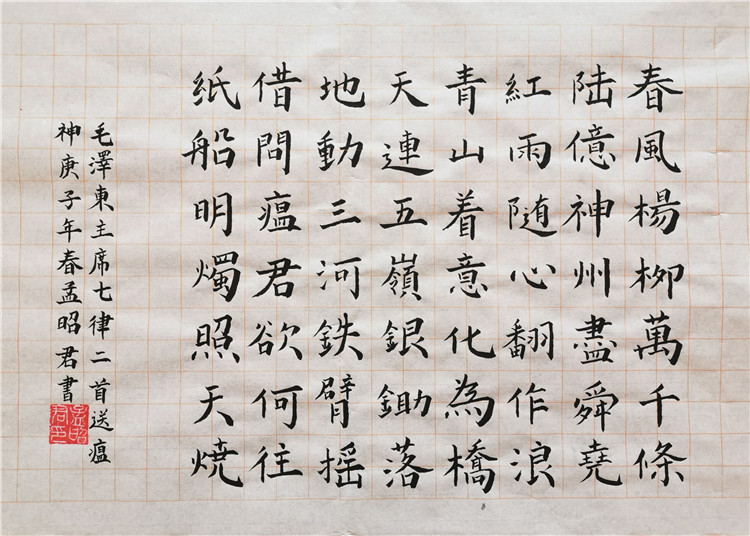 春風楊柳萬千條
陆億神州盡舜堯
紅雨随心翻作浪
青山着意化為橋
天連五嶺銀鋤落
地動三河鉄臂摇
借問瘟君欲何往
紙船明燭照天焼
毛澤東主席七律二首送瘟
神庚子年春孟昭君書
孟昭君印